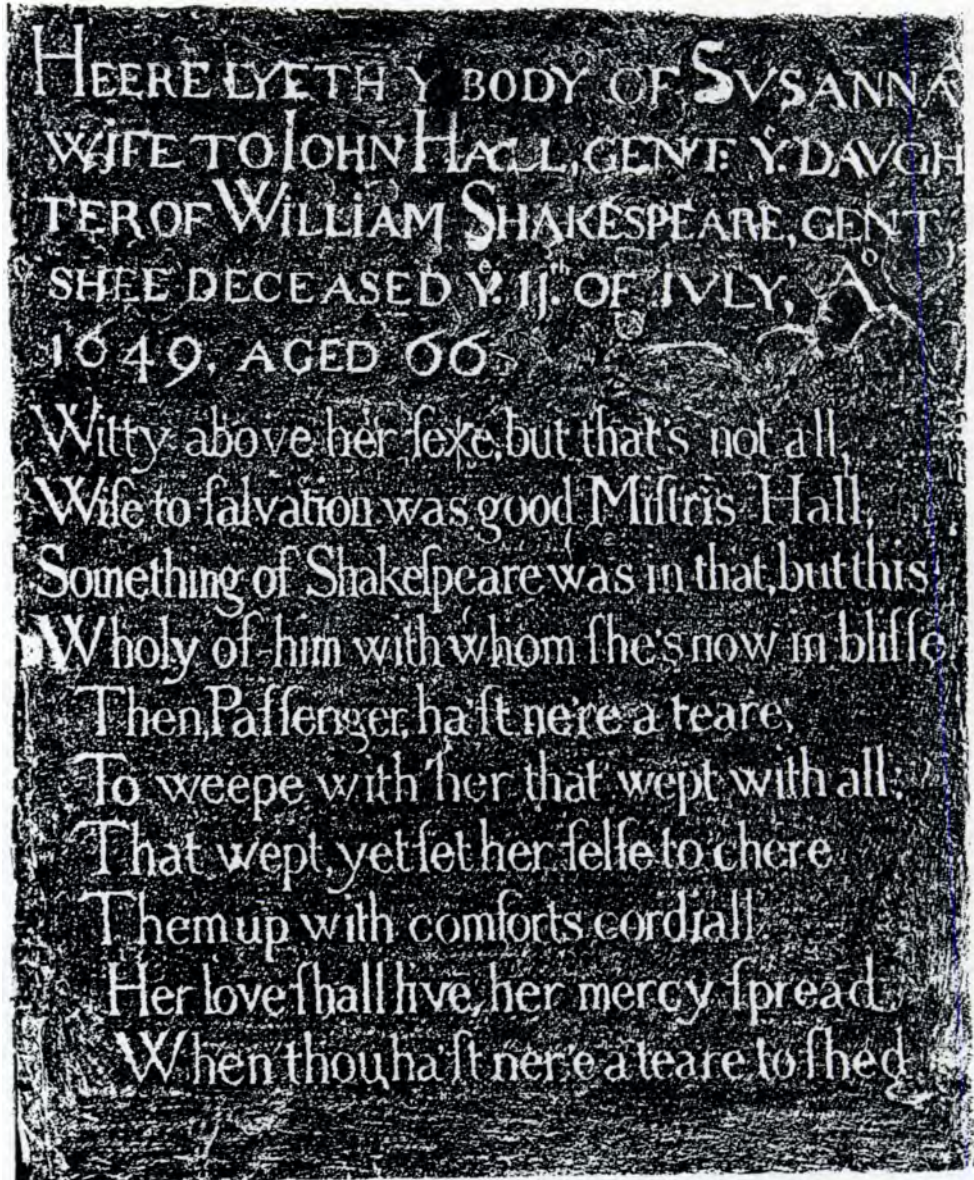 HEERE LYETH Y BODY OF SVSANNA
WIFE TO IOHN HALL, GENT: Yᵉ. DAVGH
TER OF WILLIAM SHAKESPEARE, GENT
SHEE DECEASED Yᵉ. IJᵗʰ. OF IVLY, Aᵒ.
1649, AGED 66.
Witty above her ſexe, but that's not all,
Wiſe to ſalvation was good Miſtris Hall,
Something of Shakeſpeare was in that, but this
Wholy of him with whom ſhe's now in bliſſe.
Then, Paſſenger, ha'ſt ne're a teare,
To weepe with her that wept with all;
That wept, yet ſet her ſelfe to chere
Them up with comforts cordiall.
Her love ſhall live, her mercy ſpread,
When thou ha'ſt ner'e a teare to ſhed